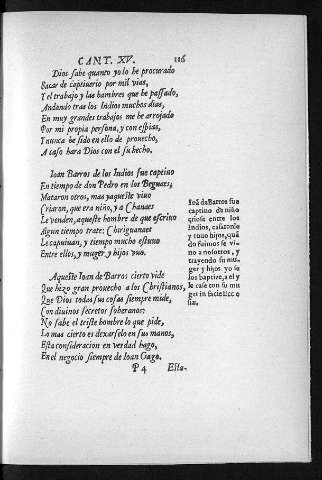 CANT. XV. 116
Dios sabe quanto yo lo he procurado
Sacar de captiuerio por mil vias,
Y el trabajo y las hambres que he passado,
Andando tras los Indios muchos dias,
En muy grandes trabajos me he arrojado
Por mi propia persona, y con espias,
Y nunca he sido en ello de prouecho,
A caso hara Dios con el su hecho.
Ioan Barros de los Indios fue captiuo
En tiempo de don Pedro en los Beguaes,
Mataron otros, mas aqueste viuo
Criaron, que era niño, y a Chanaes
Le venden, aqueste hombre de que escriuo
Algun tiempo trate: Chiriguanaes
Le captiuan, y tiempo mucho estuuo
Entre ellos, y muger y hijos vuo.
Ioã de Barros fue
captiuo de niño
criose entre los
Indios, casaronle
y tuuo hijos, quã
do fuimos se vi-
no a nosotros, y
trayendo su mu-
ger y hijos yo se
los baptize, a el y
le case con su mu
ger in facie Ecclo
sia.
Aqueste Ioan de Barros cierto vide
Que hizo gran prouecho a los Christianos,
Que Dios todas sus cosas siempre mide,
Con diuinos secretos soberanos:
No sabe el triste hombre lo que pide,
Lo mas cierto es dexarselo en sus manos,
Esta consideracion en verdad hago,
En el negocio siempre de Ioan Gago.
P 4 Esta-